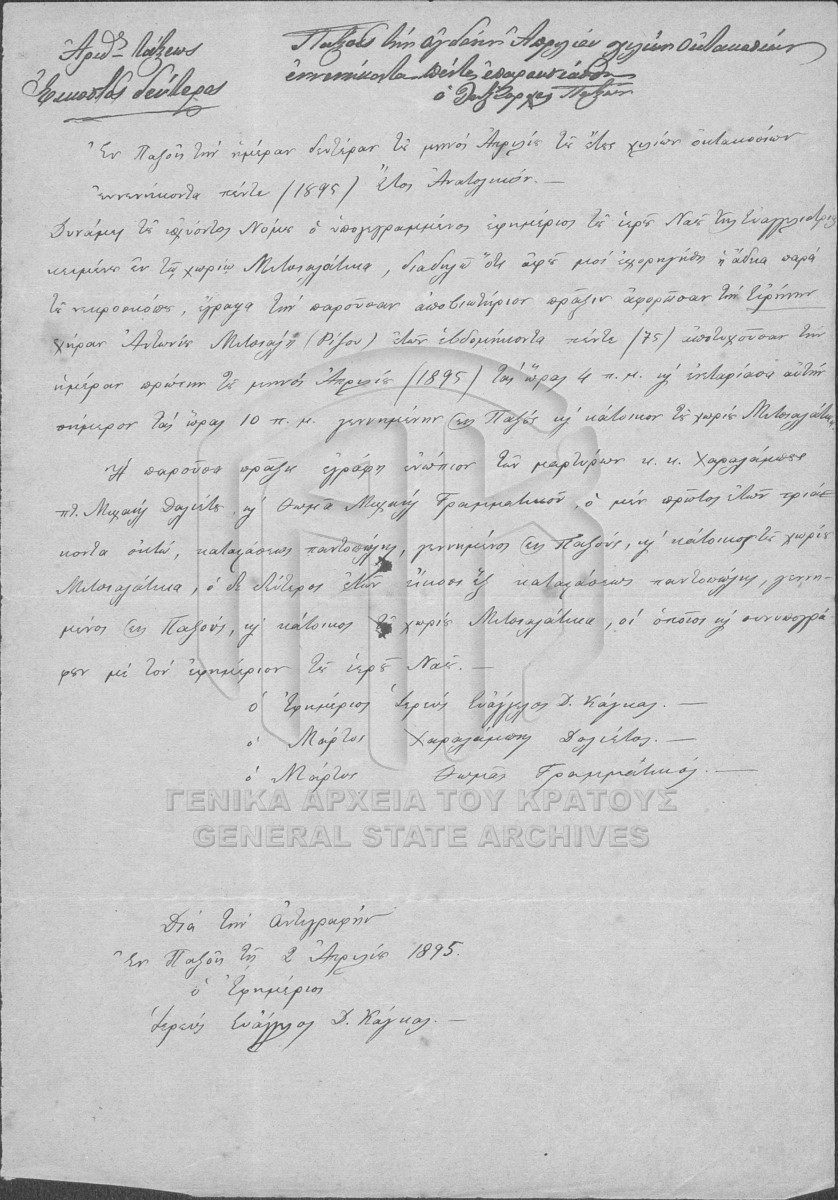 Ἀριθ. τάξεως
Εἰκοστὸς δεύτερος
Παξοὺς τὴν ὀγδόην Ἀπριλίου χιλίων ὀκτακοσίων
ἐννενήκοντα πέντε ἐπαρουσιάσθη
ὁ Ληξίαρχος Παξῶν
Ἐν Παξοῖς τὴν ἡμέραν δευτέραν τοῦ μηνὸς Ἀπριλίου τοῦ ἔτους χιλίων ὀκτακοσίων
ἐννενήκοντα πέντε (1895) Ἔτος Ἀνατολικόν. —
Δυνάμει τοῦ ἰσχύοντος Νόμου ὁ ὑπογεγραμμένος ἐφημέριος τοῦ ἱεροῦ Ναοῦ τῆς Εὐαγγελιστρίας
κειμένου ἐν τῷ χωρίῳ Μιτσιαλάτικα, διαδηλῶ ὅτι ἀφοῦ μοὶ ἐχορηγήθη ἡ ἄδεια παρὰ
τοῦ νεκροσκόπου, ἔγραψα τὴν παροῦσαν ἀποβιωτήριον πρᾶξιν ἀφορῶσαν τὴν Εἰρήνην
χήραν Ἀντωνίου Μιτσιάλη (Ρίζου) ἐτῶν ἑβδομήκοντα πέντε (75) ἀποτυχοῦσαν τὴν
ἡμέραν πρώτην τοῦ μηνὸς Ἀπριλίου (1895) τὰς ὥρας 4 π. μ. κ' ἐνταφίασα αὐτὴν
σήμερον τὰς ὥρας 10 π. μ. γεννημένην εἰς Παξοὺς κ' κάτοικον τοῦ χωρίου Μιτσιαλάτικα.
Ἡ παροῦσα πρᾶξις ἐγράφη ἐνώπιον τῶν μαρτύρων κ. κ. Χαραλάμπους
πτ. Μιχαὴλ Δαλιέτου κ' Θωμᾶ Μιχαὴλ Γραμματικοῦ, ὁ μὲν πρῶτος ἐτῶν τριά-
κοντα ὀκτώ, καταστάσεως παντοπώλης, γεννημένος εἰς Παξούς, κ' κάτοικος τοῦ χωρίου
Μιτσιαλάτικα, ὁ δὲ δεύτερος ἐτῶν εἴκοσι ἓξ καταστάσεως παντοπώλης, γεννη-
μένος εἰς Παξούς, κ' κάτοικος τοῦ χωρίου Μιτσιαλάτικα, οἱ ὁποῖοι κ' συνυπογρά-
φουν μὲ τὸν ἐφημέριον τοῦ ἱεροῦ Ναοῦ. —
ὁ Ἐφημέριος Ἱερεὺς Εὐάγγελος Δ. Κάγκας. —
ὁ Μάρτυς Χαραλάμπης Δαλιέτος. —
ὁ Μάρτυς Θωμᾶς Γραμματικός. —
ΓΕΝΙΚΑ ΑΡΧΕΙΑ ΤΟΥ ΚΡΑΤΟΥΣ
GENERAL STATE ARCHIVES
Διὰ τὴν Ἀντιγραφὴν
Ἐν Παξοῖς τῇ 2 Ἀπριλίου 1895.
ὁ Ἐφημέριος
Ἱερεὺς Εὐάγγελος Δ. Κάγκας. —